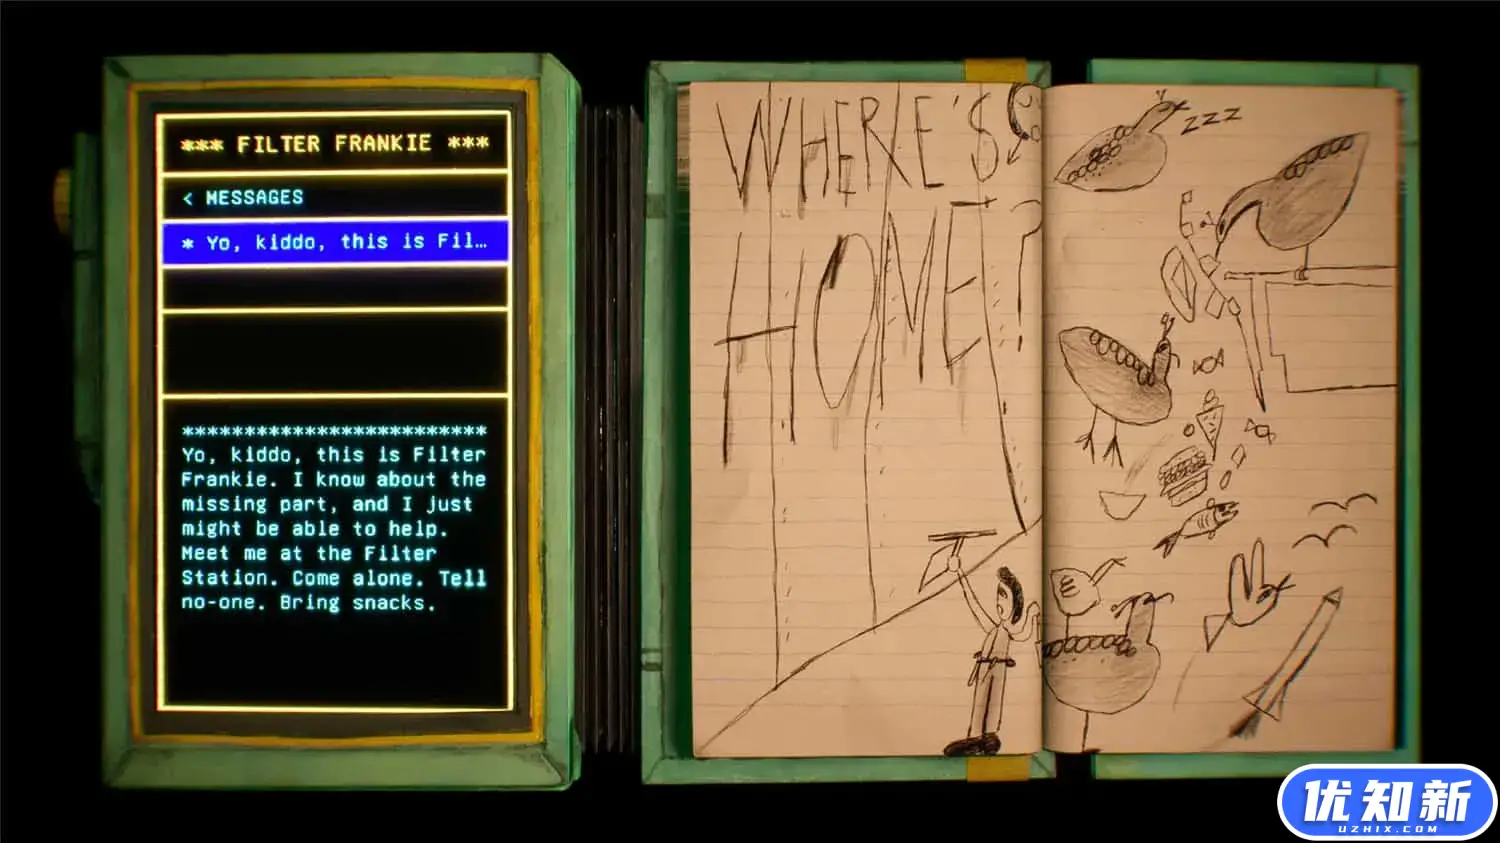 *** FILTER FRANKIE ***
< MESSAGES
* Yo, kiddo, this is Fil…
**************************
Yo, kiddo, this is Filter
Frankie. I know about the
missing part, and I just
might be able to help.
Meet me at the Filter
Station. Come alone. Tell
no-one. Bring snacks.
WHERE'S
HOME?
ZZZ
优知新
UZHIX.COM